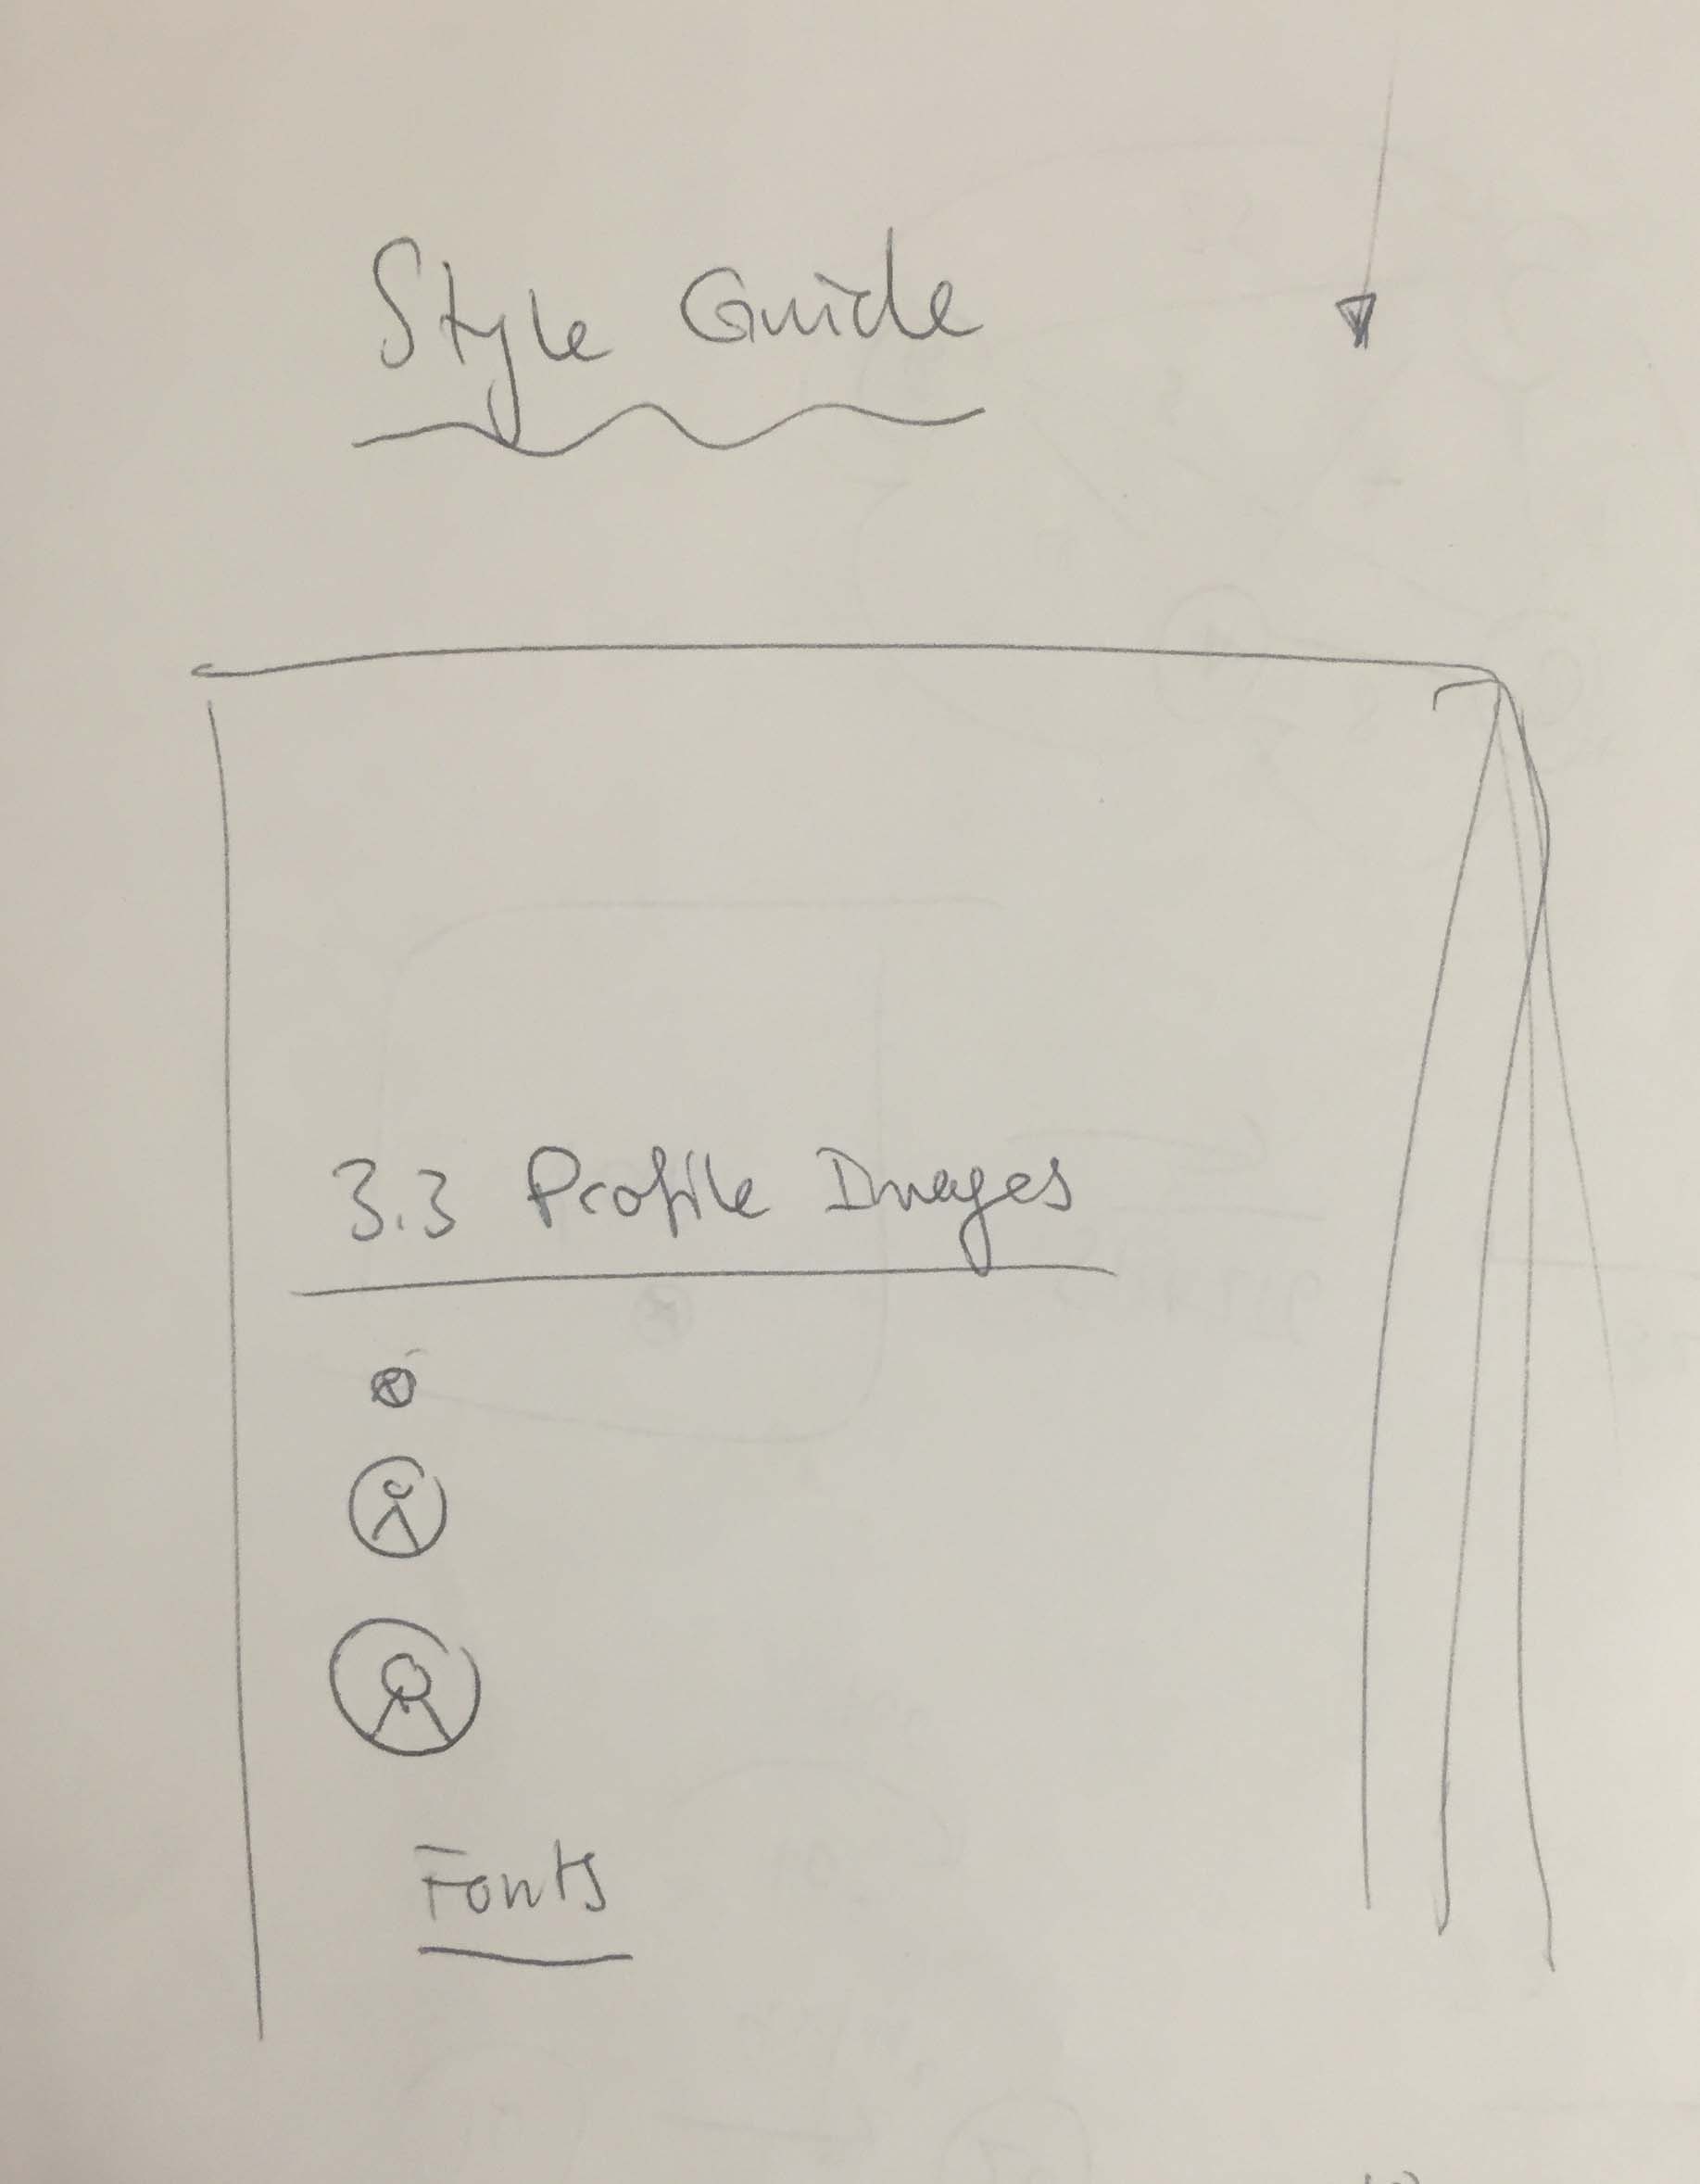 Style Guide
3.3 Profile Images
Fonts